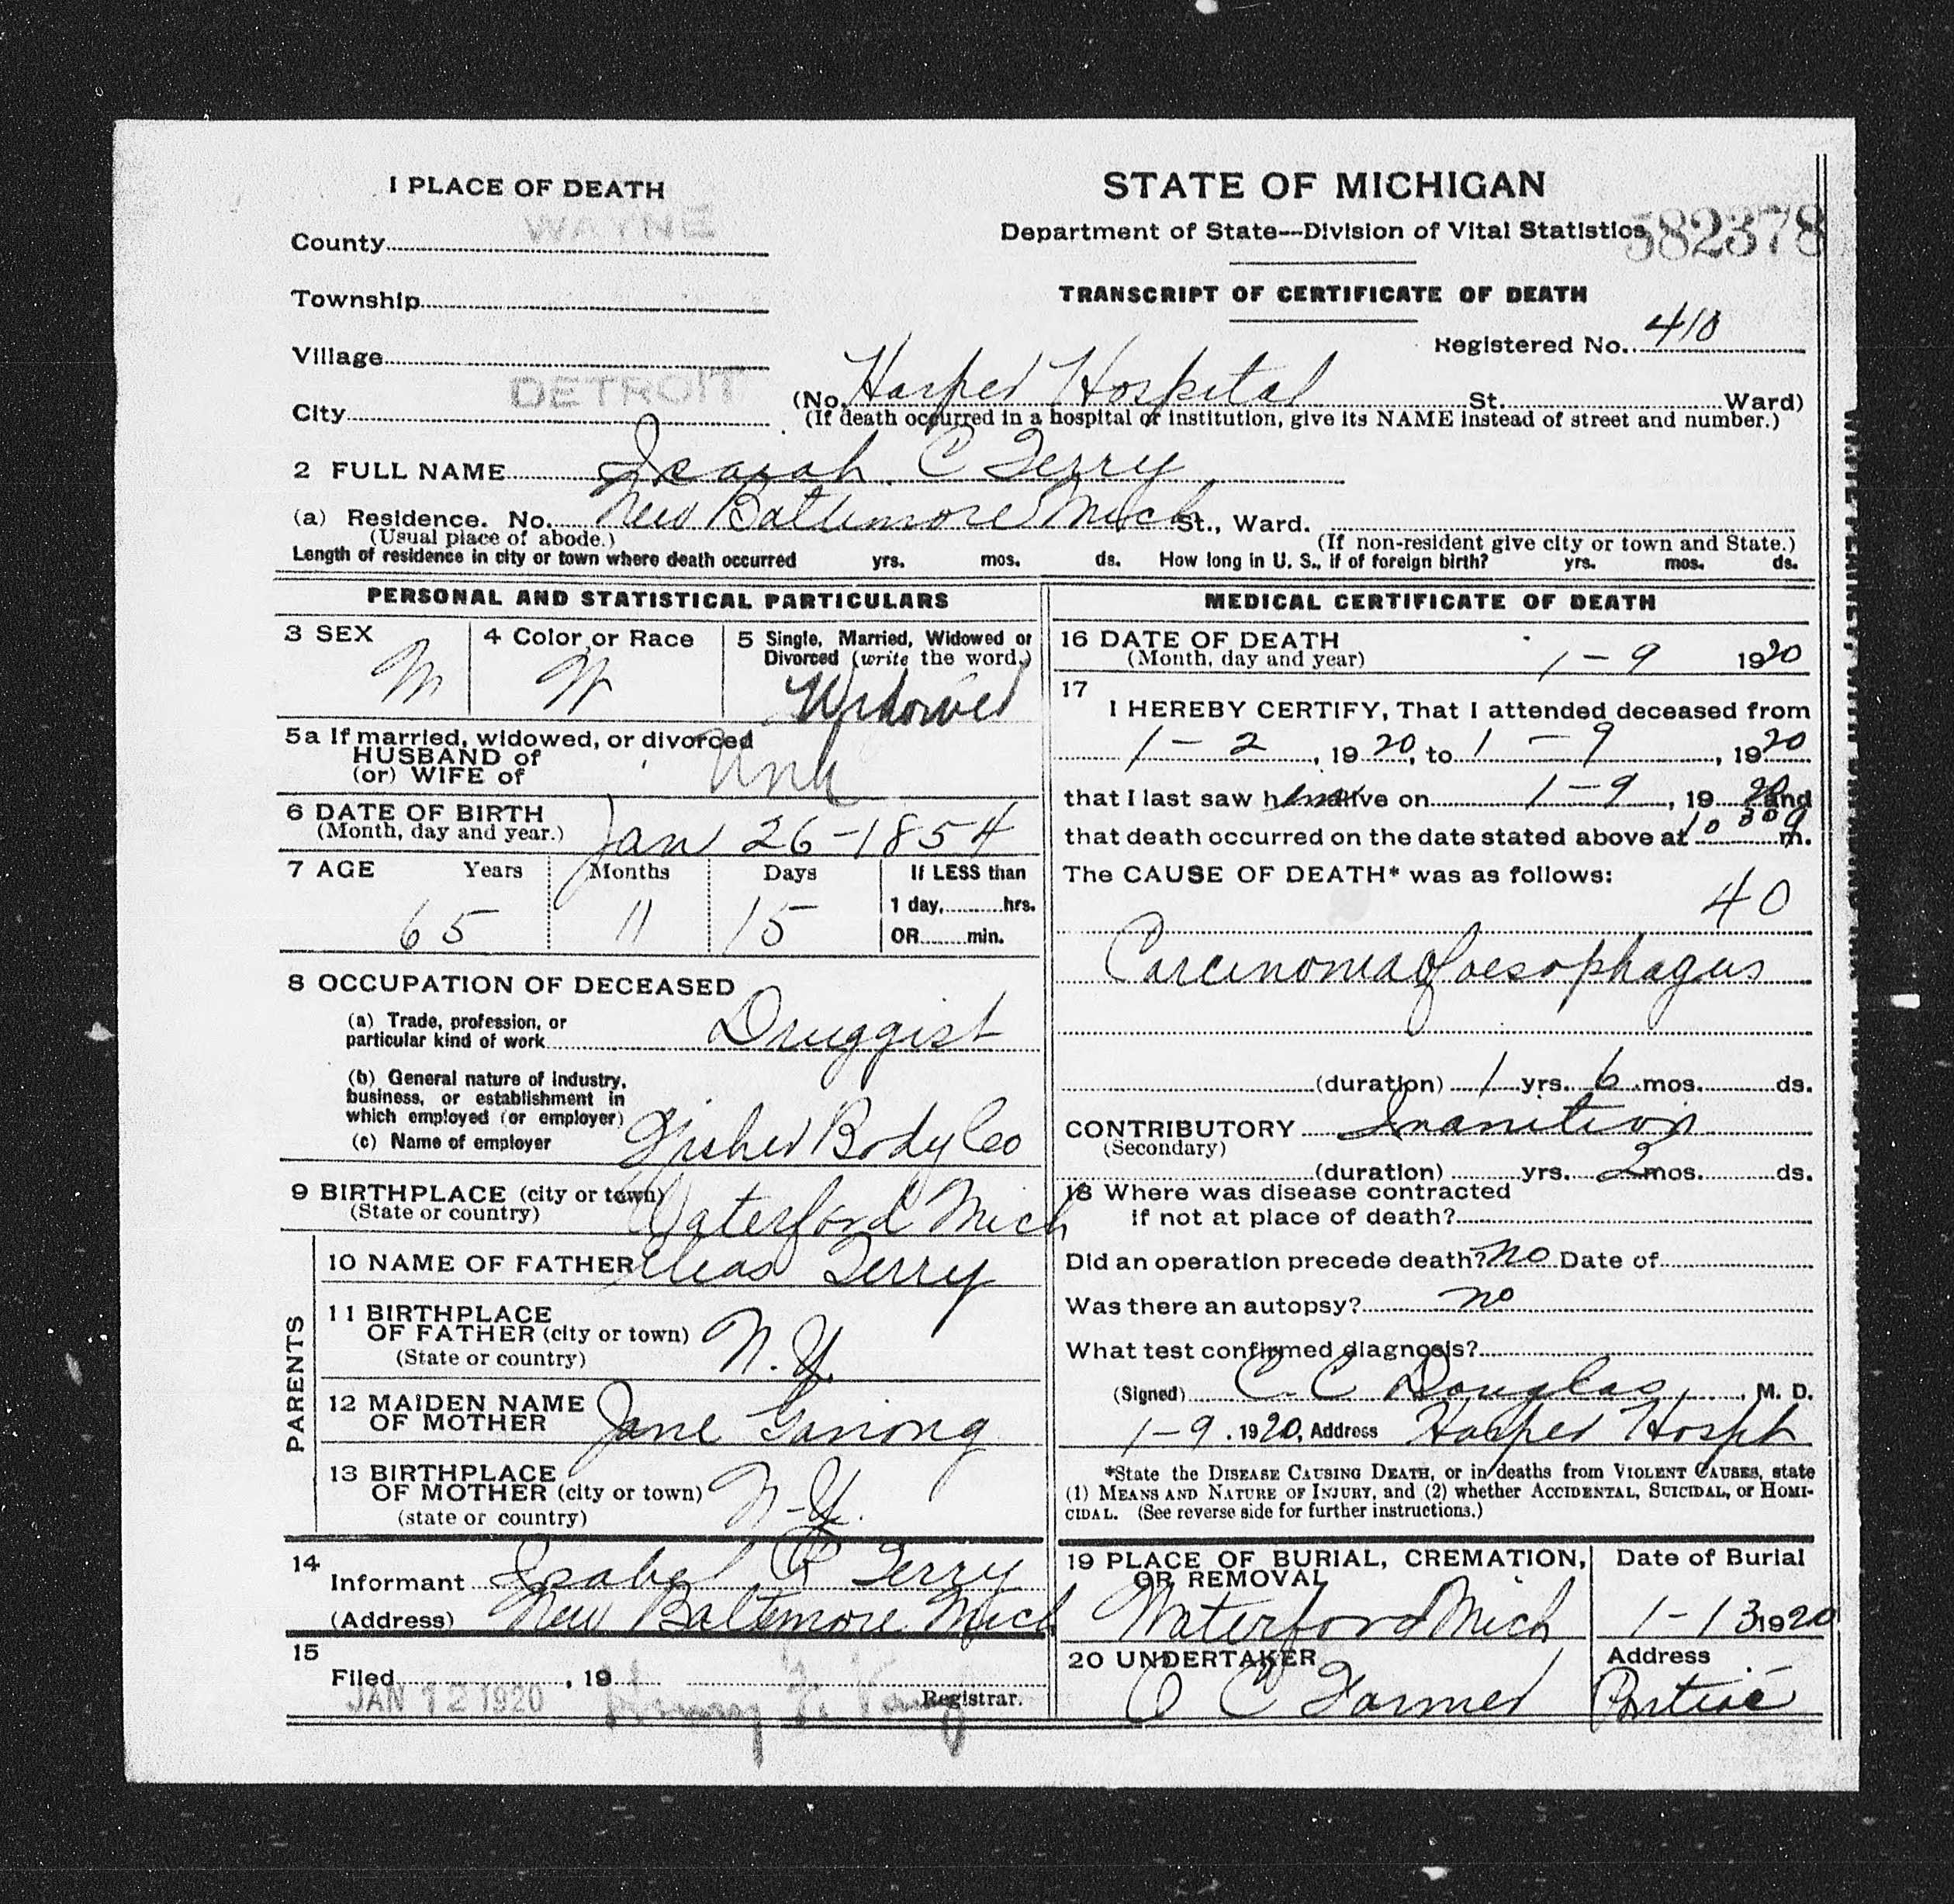 1 PLACE OF DEATH
County WAYNE
Township
Village
City DETROIT
STATE OF MICHIGAN
Department of State—Division of Vital Statistics
582378
TRANSCRIPT OF CERTIFICATE OF DEATH
Registered No. 410
(No. Harper Hospital St. Ward)
(If death occurred in a hospital or institution, give its NAME instead of street and number.)
2 FULL NAME Isaiah C Terry
(a) Residence. No. New Baltimore Mich St., Ward.
(Usual place of abode.) (If non-resident give city or town and State.)
Length of residence in city or town where death occurred yrs. mos. ds. How long in U. S., if of foreign birth? yrs. mos. ds.
PERSONAL AND STATISTICAL PARTICULARS
3 SEX M
4 Color or Race W
5 Single, Married, Widowed or
Divorced (write the word.)
Widowed
5a If married, widowed, or divorced
HUSBAND of
(or) WIFE of Unk
6 DATE OF BIRTH
(Month, day and year.) Jan 26-1854
7 AGE Years Months Days If LESS than
65 11 15 1 day, hrs.
OR min.
8 OCCUPATION OF DECEASED
(a) Trade, profession, or
particular kind of work Druggist
(b) General nature of industry,
business, or establishment in
which employed (or employer)
(c) Name of employer Fisher Body Co
9 BIRTHPLACE (city or town)
(State or country) Waterford Mich
PARENTS
10 NAME OF FATHER Terry
11 BIRTHPLACE
OF FATHER (city or town) N.Y.
(State or country)
12 MAIDEN NAME
OF MOTHER Jane Ganong
13 BIRTHPLACE
OF MOTHER (city or town) N-Y.
(state or country)
14
Informant Isabel Terry
(Address) New Baltimore Mich
15
Filed JAN 12 1920, 19
Henry F. Registrar.
MEDICAL CERTIFICATE OF DEATH
16 DATE OF DEATH
(Month, day and year) 1-9 1920
17
I HEREBY CERTIFY, That I attended deceased from
1-2, 1920, to 1-9, 1920
that I last saw him alive on 1-9, 1920 and
that death occurred on the date stated above at 10 30 a m.
The CAUSE OF DEATH* was as follows:
40
Carcinoma of oesophagus
(duration) 1 yrs. 6 mos. ds.
CONTRIBUTORY Inanition
(Secondary)
(duration) yrs. 2 mos. ds.
18 Where was disease contracted
if not at place of death?
Did an operation precede death? no Date of
Was there an autopsy? no
What test confirmed diagnosis?
(Signed) C. C Douglas, M. D.
1-9. 1920, Address Harper Hospt
*State the DISEASE CAUSING DEATH, or in deaths from VIOLENT CAUSES, state
(1) MEANS AND NATURE OF INJURY, and (2) whether ACCIDENTAL, SUICIDAL, or HOMI-
CIDAL. (See reverse side for further instructions.)
19 PLACE OF BURIAL, CREMATION,
OR REMOVAL
Waterford Mich
Date of Burial
1-13 1920
20 UNDERTAKER
O C Farmer
Address
Pontiac